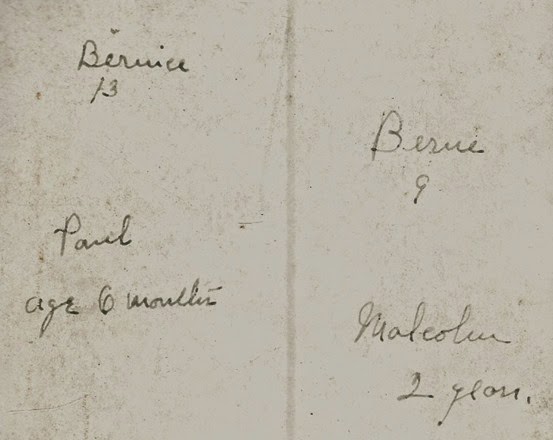 Bernice
13
Berne
9
Paul
age 6 months
Malcolm
2 years.